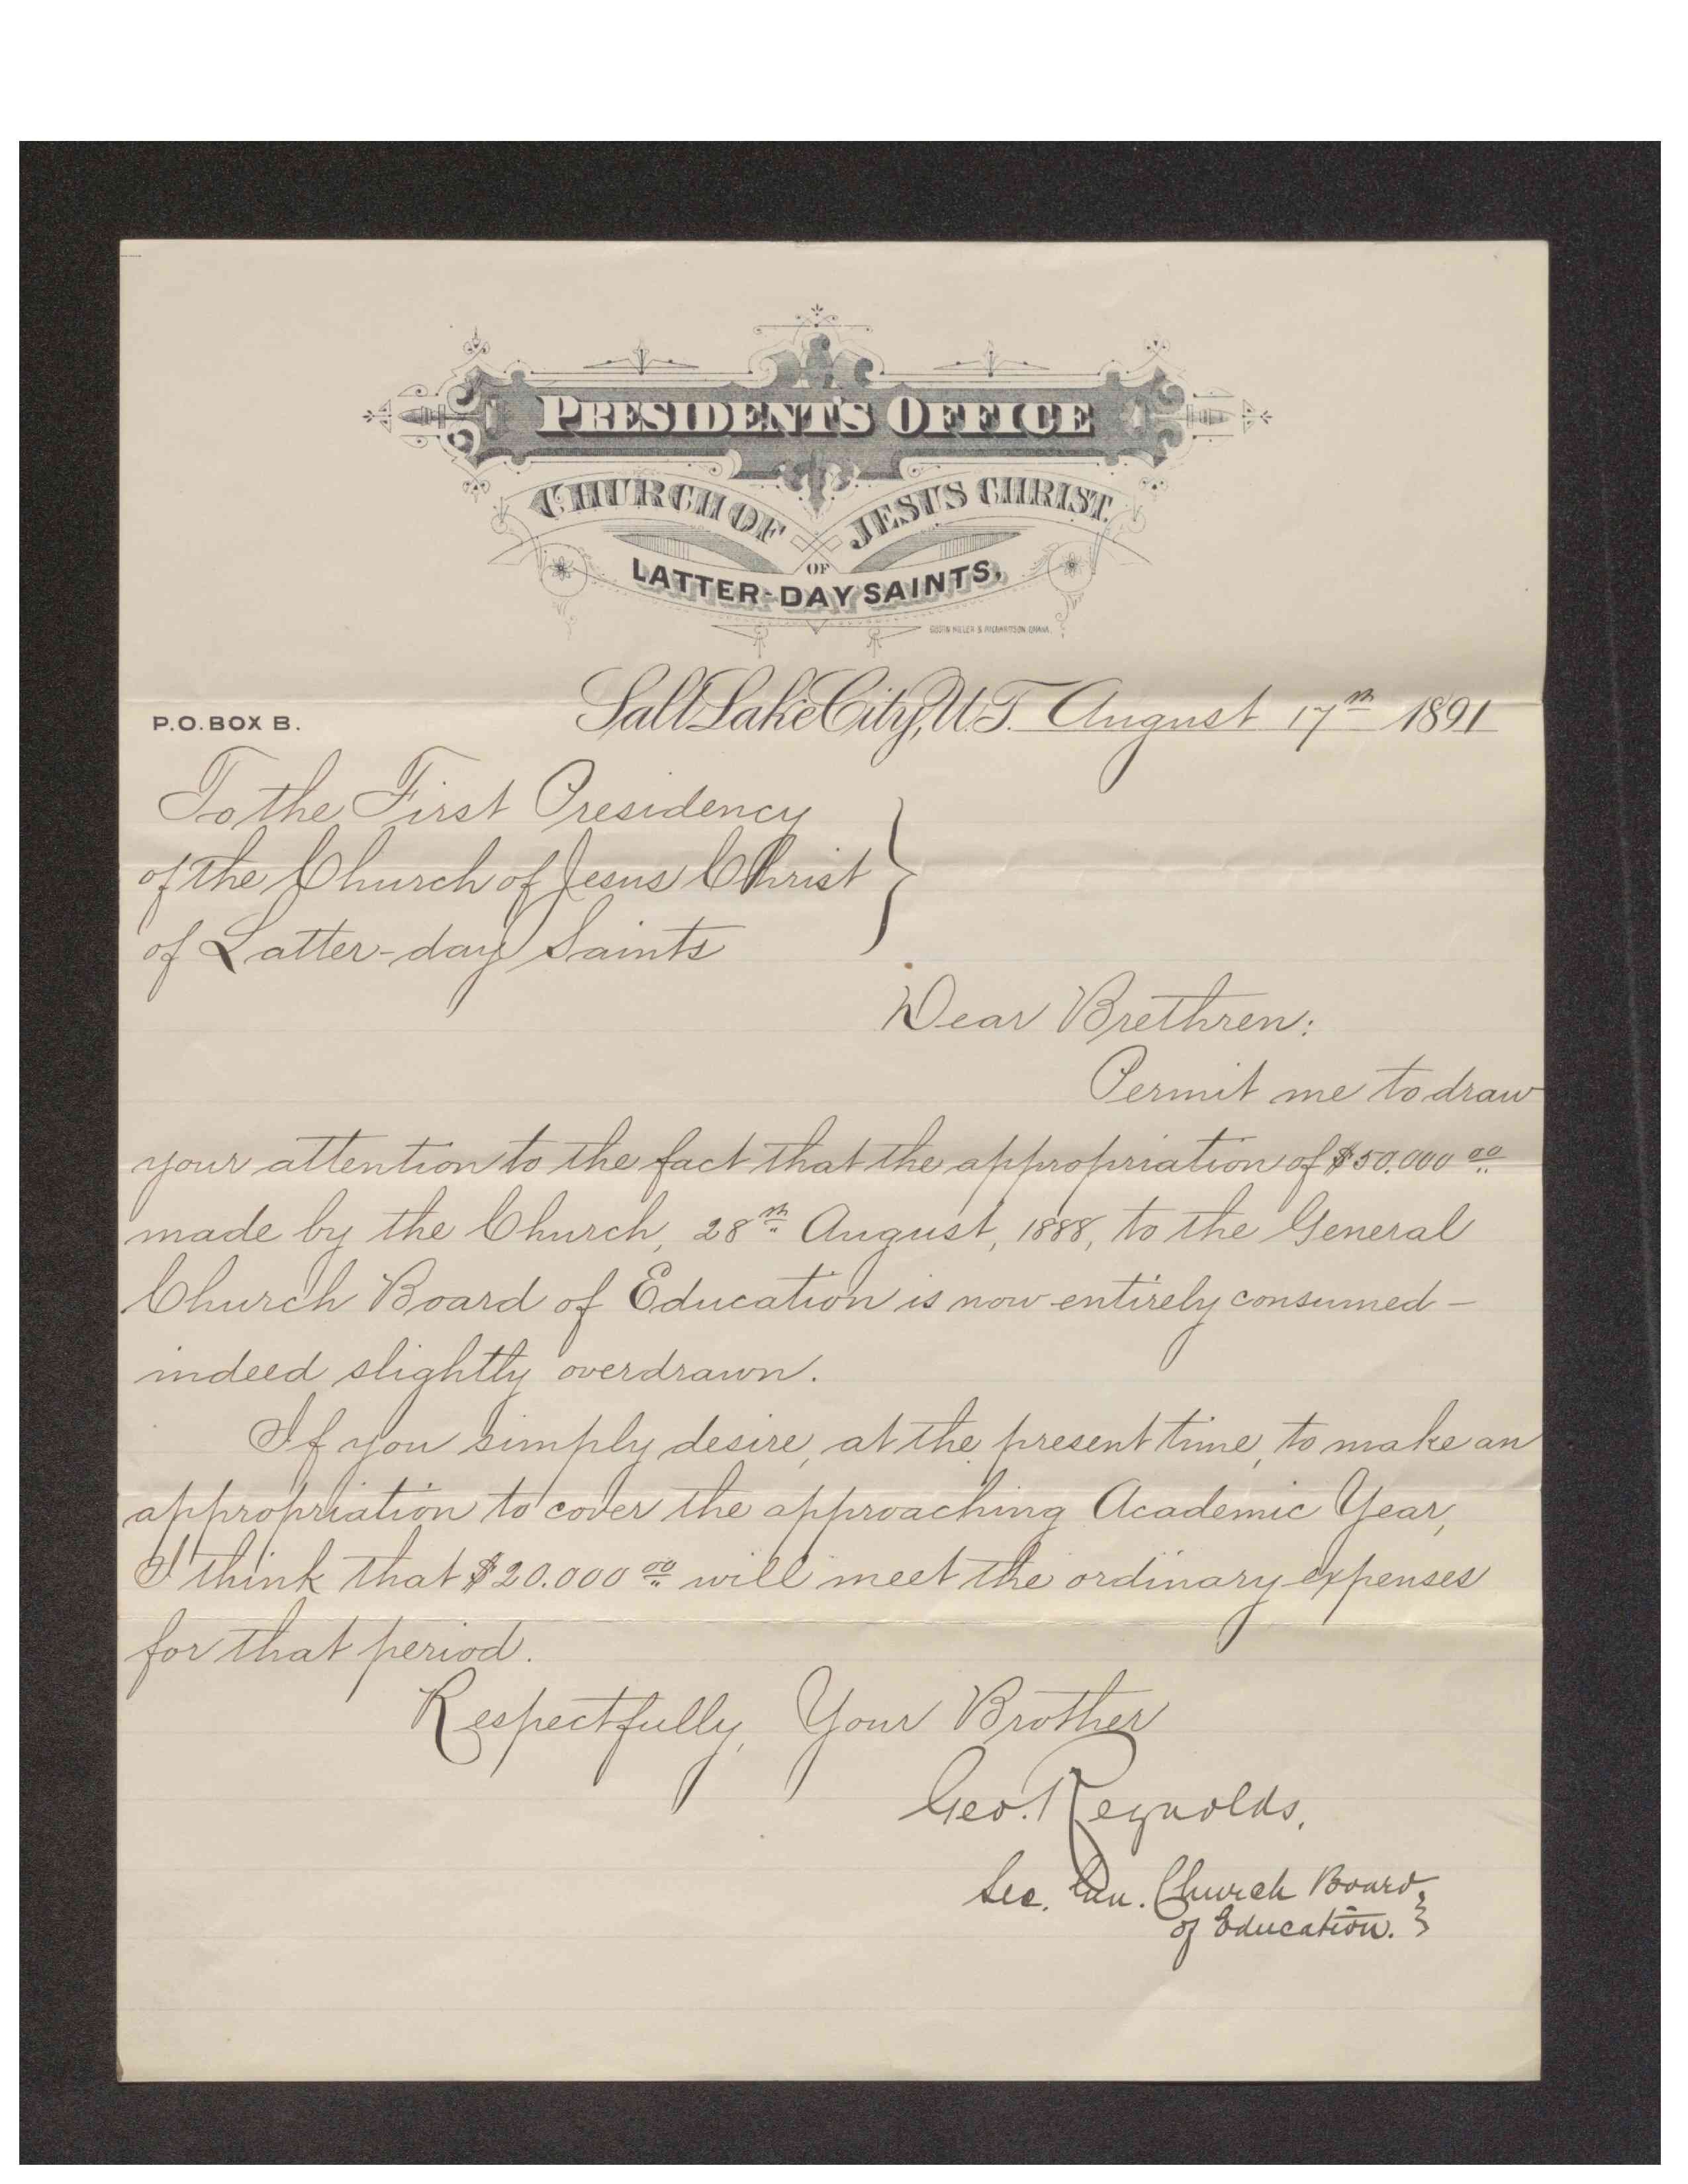 PRESIDENT'S OFFICE
CHURCH OF JESUS CHRIST
OF
LATTER-DAY SAINTS,
P.O. BOX B.
Salt Lake City, U.T. August 17th 1891
To the First Presidency
of the Church of Jesus Christ
of Latter-day Saints
Dear Brethren:
Permit me to draw
your attention to the fact that the appropriation of $50.000 00
made by the Church, 28th August, 1888, to the General
Church Board of Education is now entirely consumed -
indeed slightly overdrawn.
If you simply desire, at the present time, to make an
appropriation to cover the approaching Academic Year,
I think that $20.000 00 will meet the ordinary expenses
for that period.
Respectfully, Your Brother
Geo. Reynolds,
Sec. Gen. Church Board
of Education.